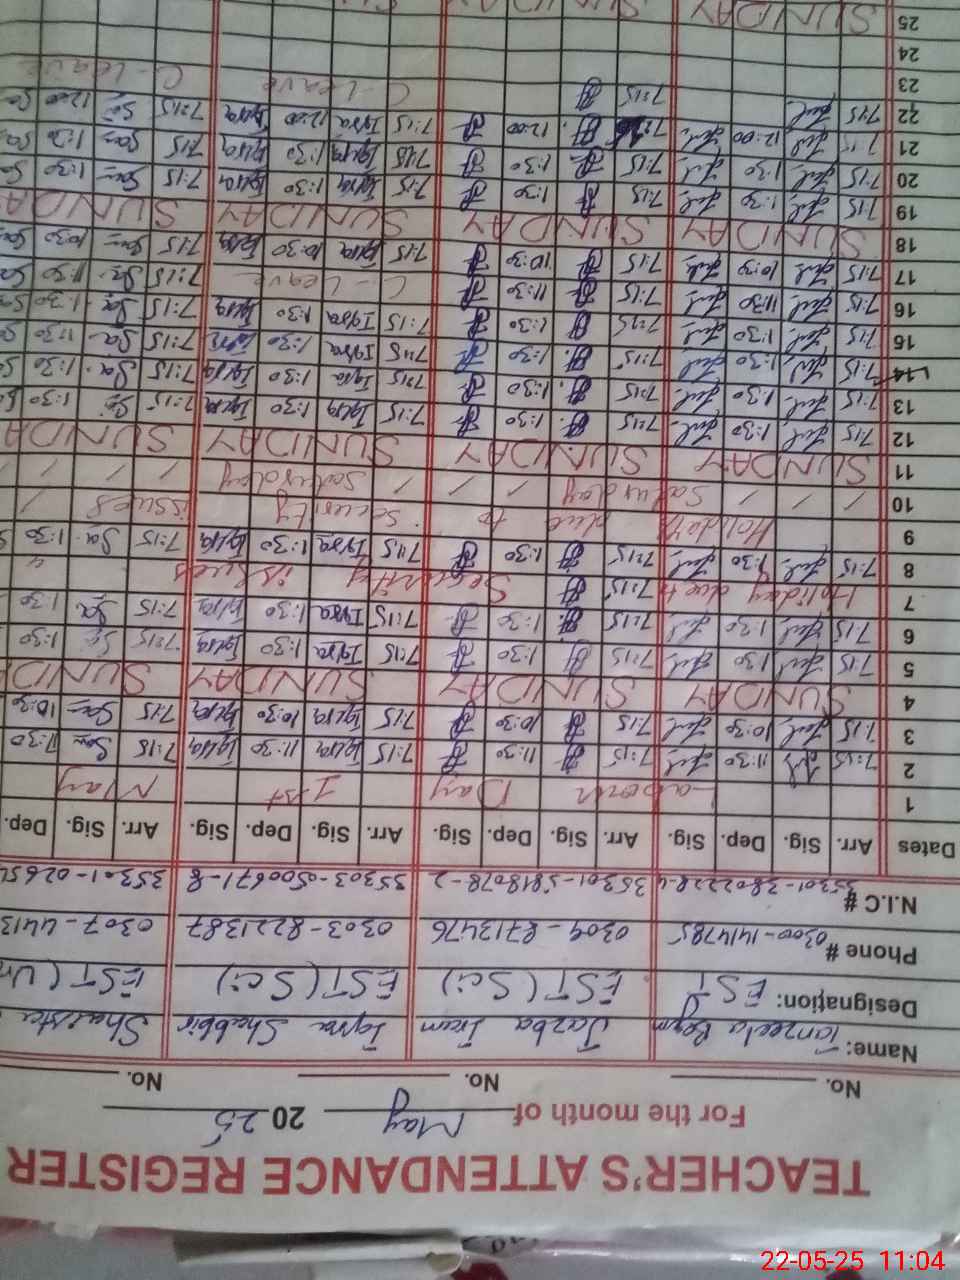 TEACHER'S ATTENDANCE REGISTER
For the month of May 2025
No. No. No.
Name: Tanzeela Begum Jazba Iram Iqra Shabbir Shaista
Designation: EST EST (Sci) EST (Sci) EST (
Phone # 0300-1414785 0304-8713476 0303-8221387 0307-4413
N.I.C # 35301-3802228-4 35301-5818078-2 35303-0500671-8 35301-0265
Dates Arr. Sig. Dep. Sig. Arr. Sig. Dep. Sig. Arr. Sig. Dep. Sig. Arr. Sig. Dep.
1 Labour Day 1st May
2 7:15 11:30 7:15 11:30 7:15 Iqra 11:30 Iqra 7:15 11:30
3 7:15 10:30 7:15 10:30 7:15 Iqra 10:30 Iqra 7:15 10:30
4 SUNDAY SUNDAY SUNDAY SUND
5 7:15 1:30 7:15 1:30 7:15 Iqra 1:30 Iqra 7:15 1:30
6 7:15 1:30 7:15 1:30 7:15 Iqra 1:30 Iqra 7:15 1:30
7 Holiday due to 7:15 Security issues
8 7:15 1:30 7:15 1:30 7:15 Iqra 1:30 Iqra 7:15 1:30
9 Holiday due to security issues
10 / / Saturday / / / Saturday / /
11 SUNDAY SUNDAY SUNDAY SUNDA
12 7:15 1:30 7:15 1:30 7:15 Iqra 1:30 Iqra 7:15 1:30
13 7:15 1:30 7:15 1:30 7:15 Iqra 1:30 Iqra 7:15 1:30
14 7:15 1:30 7:15 1:30 7:15 Iqra 1:30 Iqra 7:15 11:30
15 7:15 1:30 7:15 1:30 7:15 Iqra 1:30 Iqra 7:15 1:30
16 7:15 11:30 7:15 11:30 C-Leave 7:15 11:30
17 7:15 10:30 7:15 10:30 7:15 Iqra 10:30 Iqra 7:15 10:30
18 SUNDAY SUNDAY SUNDAY SUNDA
19 7:15 1:30 7:15 1:30 7:15 Iqra 1:30 Iqra 7:15 1:30
20 7:15 1:30 7:15 1:30 7:15 Iqra 1:30 Iqra 7:15 1:30
21 7:15 12:00 12:00 7:15 Iqra 12:00 Iqra 7:15 12:00
22 7:15 7:15 C-Leave C-Leave
23
24
25 SUNDAY SUNDAY SU
22-05-25 11:04